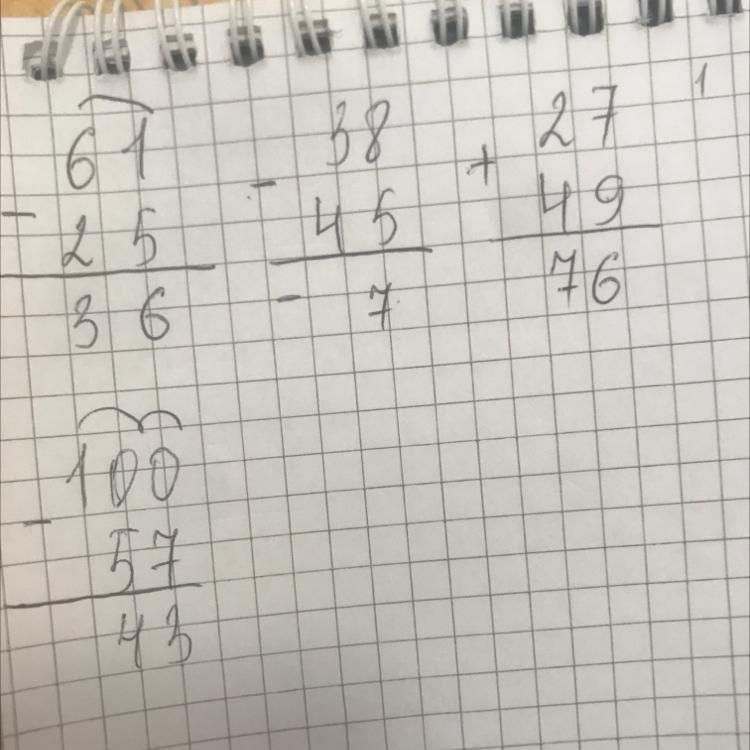 61
- 25
36
38
- 45
- 7
1
27
+ 49
76
100
- 57
43